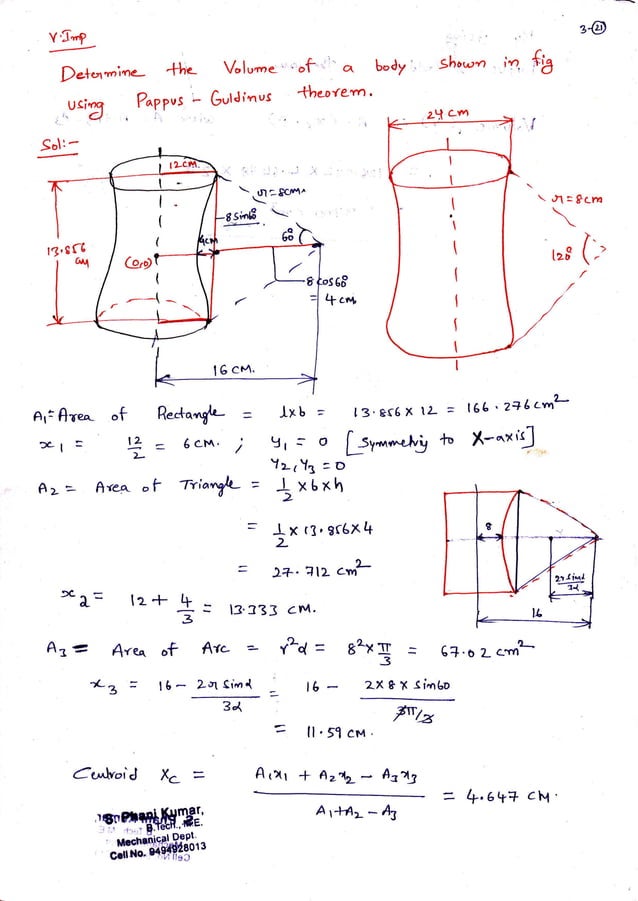 V.Imp
3-21
Determine the Volume of a body shown in fig
using Pappus - Guldinus theorem.
Sol:-
24 cm
12 CM.
r = 8cm.
r = 8cm
8 sin60°
60°
120°
13.856
cm
4cm
(0,0)
8 cos60°
= 4 cm.
16 CM.
A1 = Area of Rectangle = l x b = 13.856 x 12 = 166.276 cm2
x1 = 12/2 = 6 CM. ; y1 = 0 [Symmetry to X-axis]
Y2, Y3 = 0
A2 = Area of Triangle = 1/2 x b x h
= 1/2 x 13.856 x 4
= 27.712 cm2
8
2r sinα/3α
16
x2 = 12 + 4/3 = 13.333 CM.
A3 = Area of Arc = r2α = 8^2 x π/3 = 67.02 cm2
x3 = 16 - 2r sinα/3α = 16 - 2 x 8 x sin60/3π/3
= 11.59 CM.
Centroid Xc = A1x1 + A2x2 - A3x3/A1 + A2 - A3 = 4.647 CM.
S. Phani Kumar,
B.Tech., M.E.
Mechanical Dept.
Cell No. 9494928013